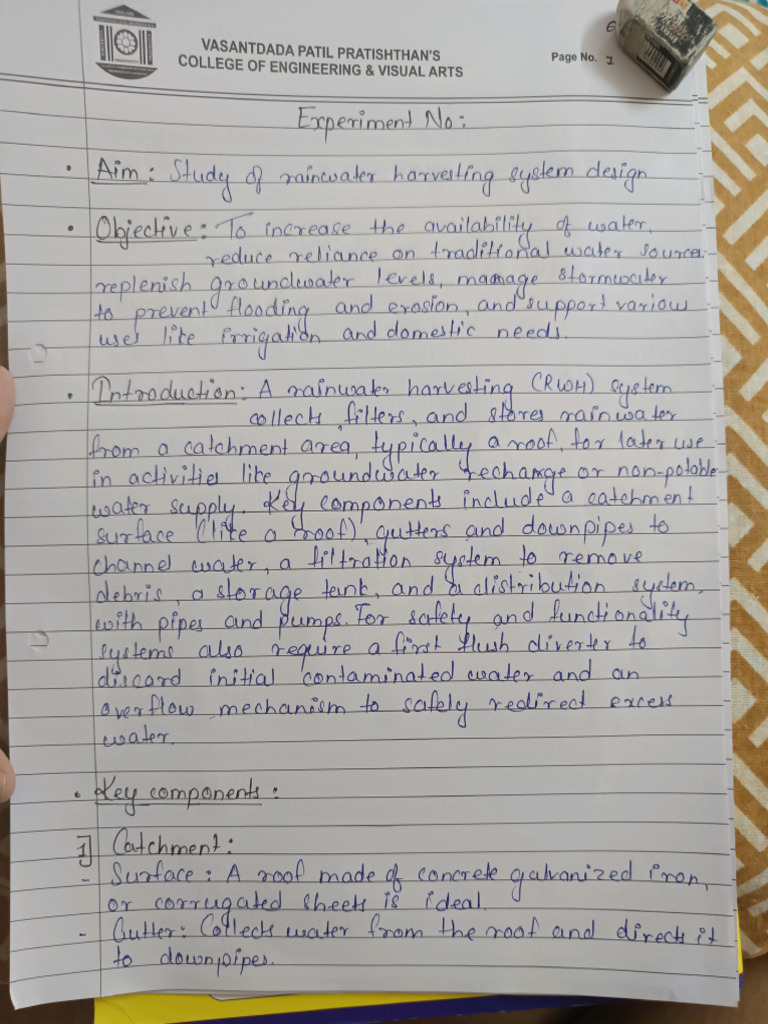 VASANTDADA PATIL PRATISHTHAN'S
COLLEGE OF ENGINEERING & VISUAL ARTS
Page No. 1
Experiment No:
• Aim: Study of rainwater harvesting system design
• Objective: To increase the availability of water,
reduce reliance on traditional water sources
replenish groundwater levels, manage stormwater
to prevent flooding and erosion, and support various
uses like irrigation and domestic needs.
• Introduction: A rainwater harvesting (RWH) system
collects, filters, and stores rainwater
from a catchment area, typically a roof, for later use
in activities like groundwater recharge or non-potable
water supply. Key components include a catchment
surface (like a roof), gutters and downpipes to
channel water, a filtration system to remove
debris, a storage tank, and a distribution system,
with pipes and pumps. For safety and functionality
systems also require a first flush diverter to
discard initial contaminated water and an
overflow mechanism to safely redirect excess
water.
• Key components:
1] Catchment:
- Surface: A roof made of concrete galvanized iron,
or corrugated sheets is ideal.
- Gutter: Collects water from the roof and directs it
to downpipes.